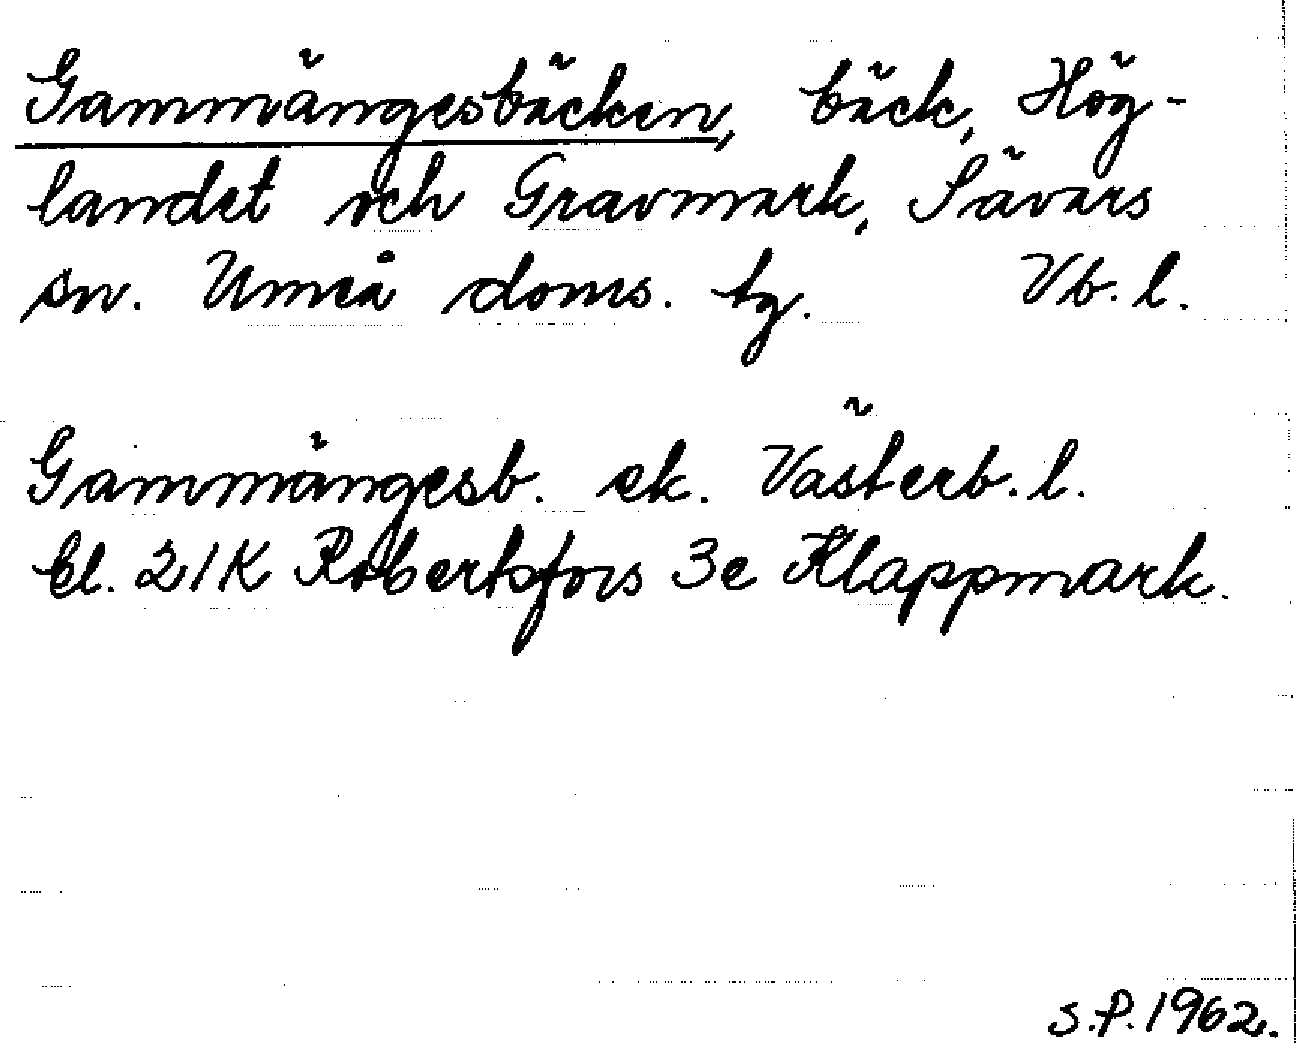 Gammängesbäcken, bäck, Hög-
landet och Gravmark, Sävars
sn. Umeå doms. tg. Vb. l.
Gammängesb. ek. Västerb. l.
bl. 21K Robertsfors 3e Klappmark.
S.P. 1962.